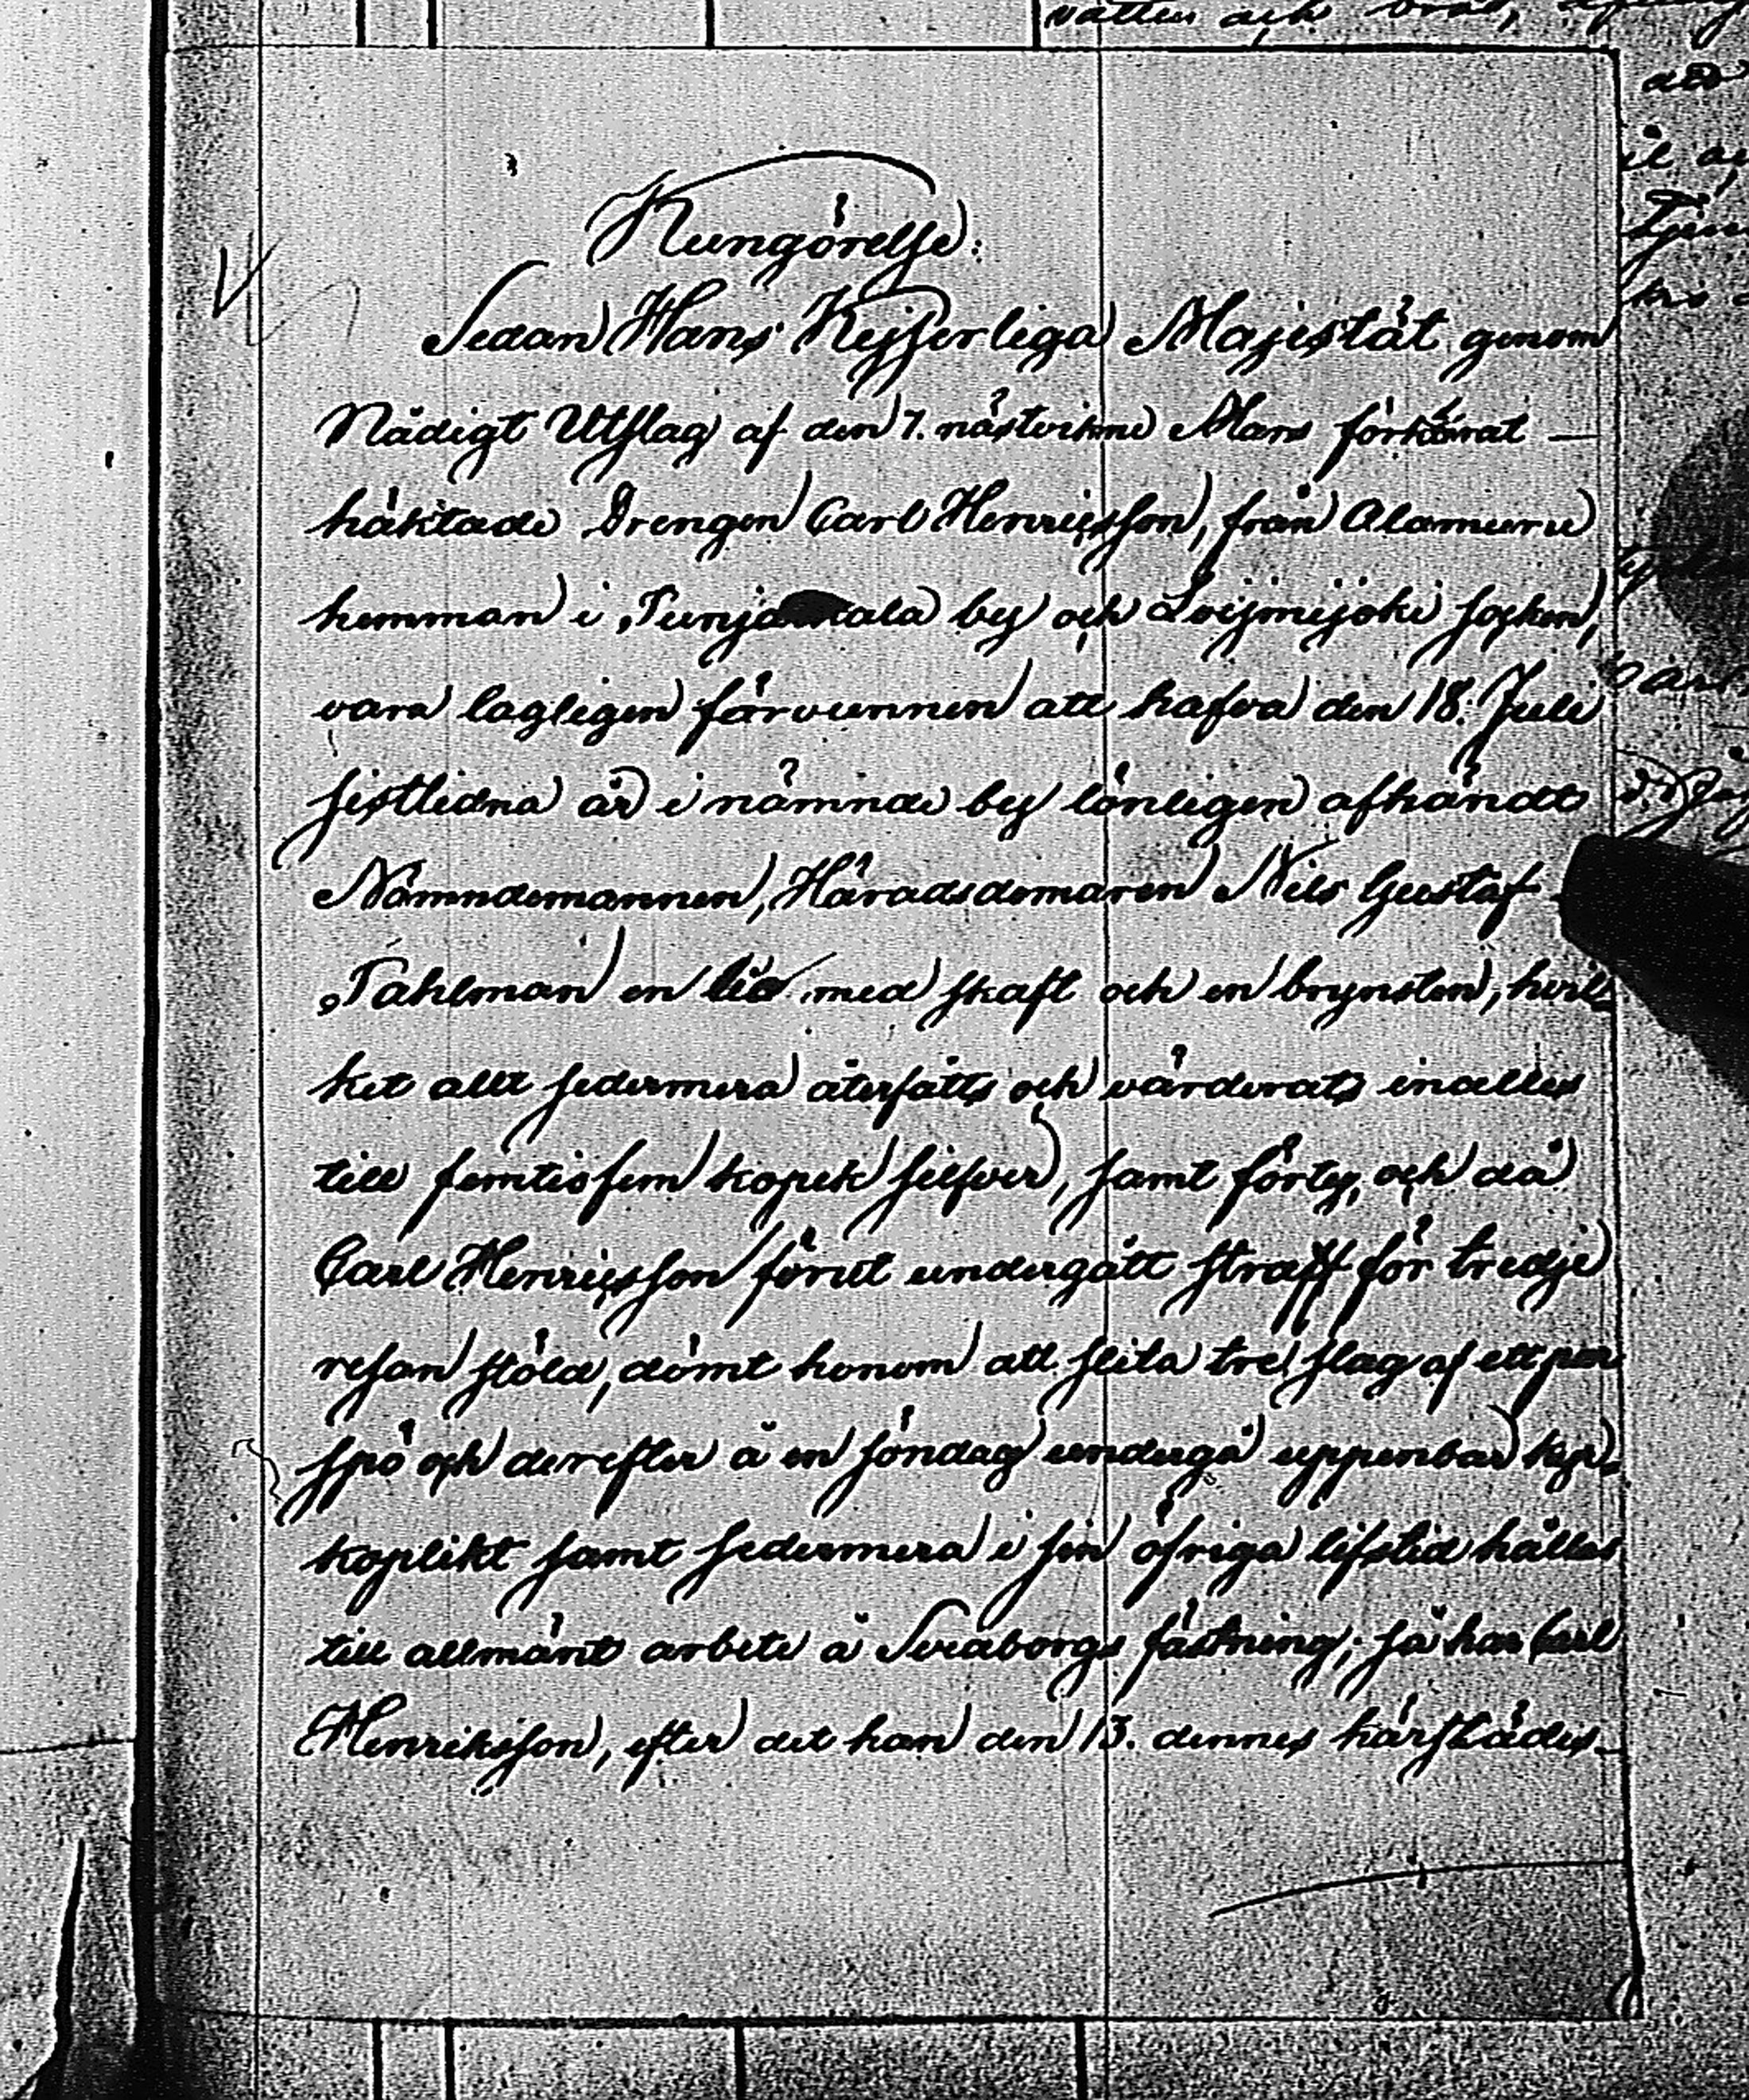 vatten och bröd,
Kungörelse:
Sedan Hans Kejserliga Majestät genom
Nådigt Utslag af den 7. nästvikne Mars förklarat
häktade Drengen Carl Henricsson, från Alamuru
hemman i by och Loijmijoki socken,
vara lagligen förvunnen att hafva den 18. Juli
sistledna år i nämnde by lönligen afhändt
Nämndemannen, Häradsdomaren Nils Gustaf
Tahlman en lia med skaft och en brynsten, hvil-
ket allt sedermera återfåtts och värderats inalles
till femtiofem kopek silfver, samt förty, och då
Carl Henricsson förut undergått straff för tredje
resan stöld, dömt honom att slita tre slag af ett par
spö och derefter å en söndag undergå uppenbar kyr-
koplikt samt sedermera i sin öfriga lifstid hållas
till allmänt arbete å Sveaborgs fästning; så har Carl
Henriksson, efter det han den 13. dennes härstädes